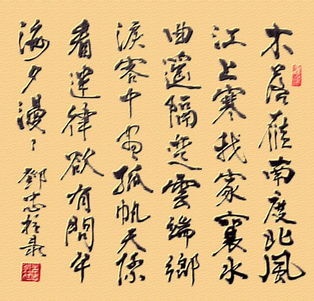 木落雁南度北風
江上寒我家襄水
曲遙隔楚雲端鄉
淚客中盡孤帆天際
看迷津欲有問平
海夕漫々
鄧志